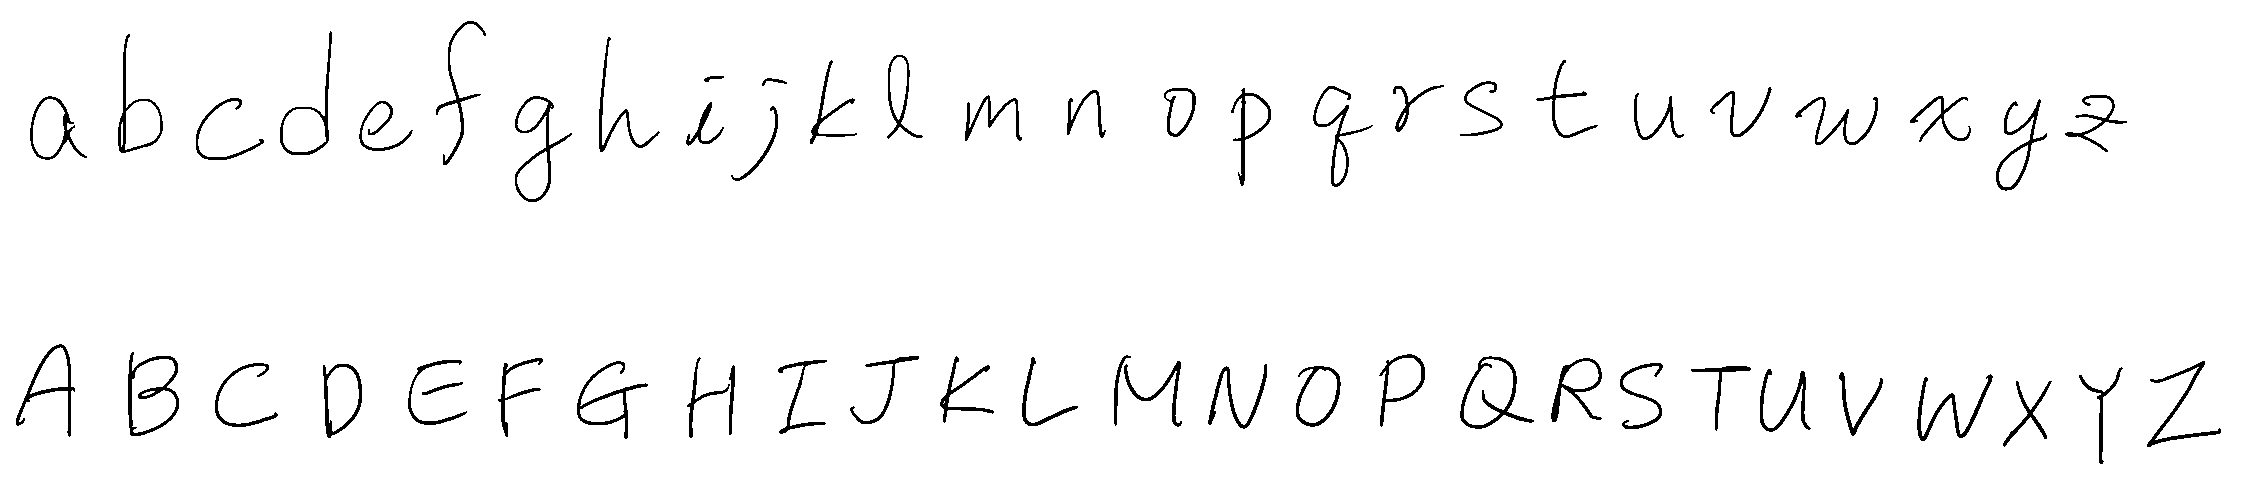 a b c d e f g h i j k l m n o p q r s t u v w x y z
A B C D E F G H I J K L M N O P Q R S T U V W X Y Z